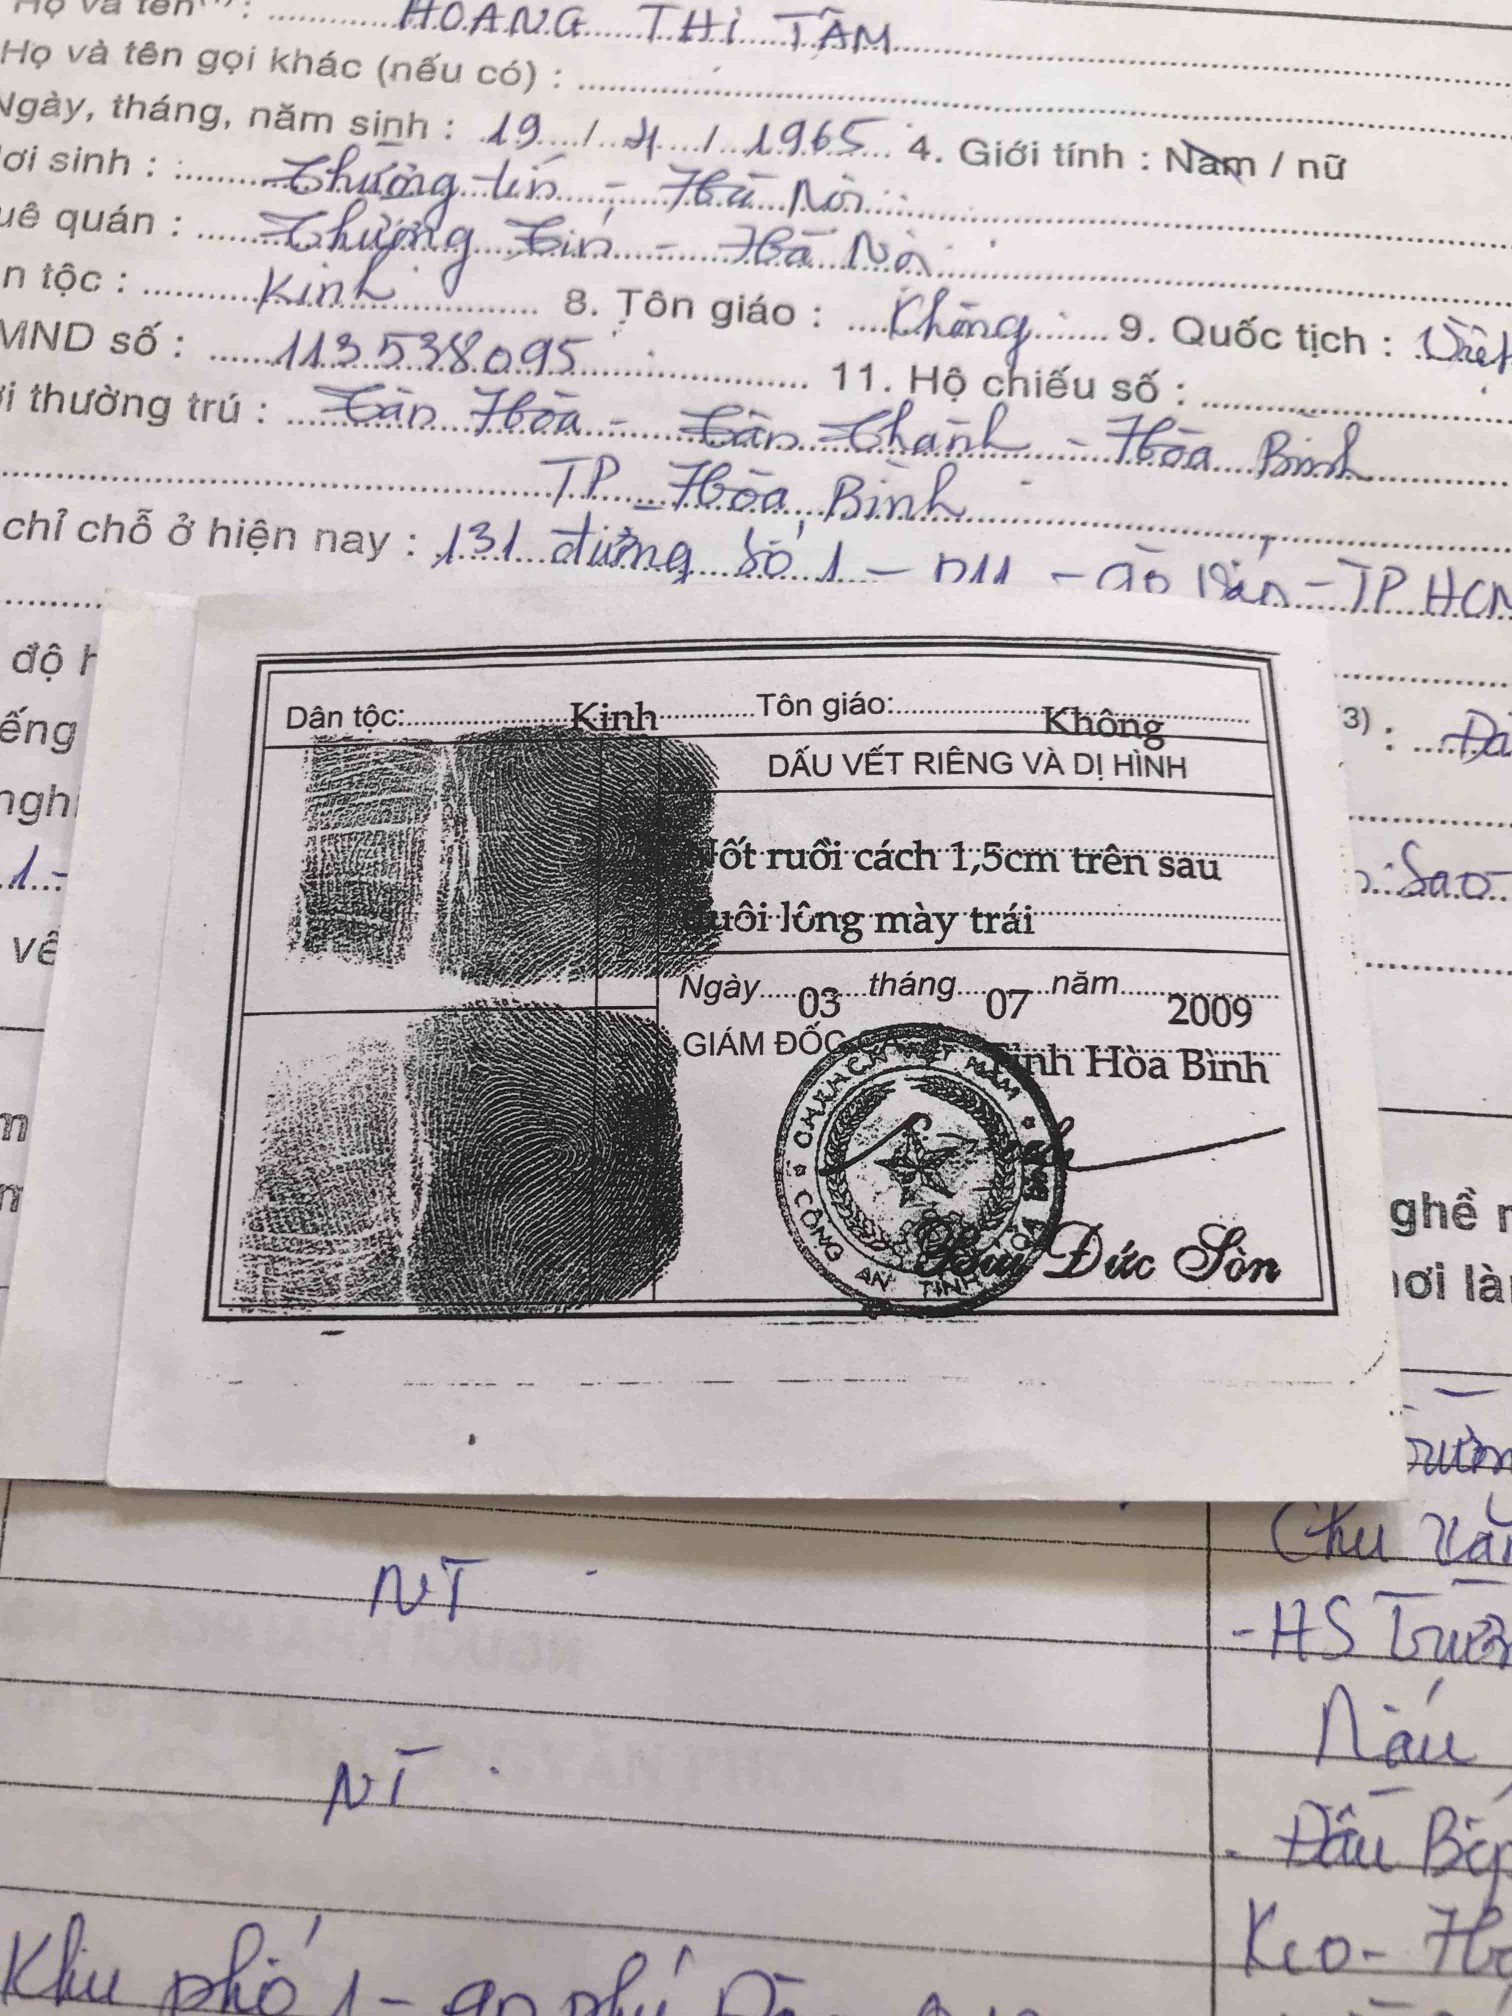 Họ và tên : HOÀNG THỊ TÂM
Họ và tên gọi khác (nếu có) :
Ngày, tháng, năm sinh : 19 / 4 / 1965 4. Giới tính : Nam / nữ
ơi sinh : Thường tín - Hà Nội
uê quán : Thường Tín - Hà Nội
n tộc : Kinh 8. Tôn giáo : Không 9. Quốc tịch : Việt
MND số : 113538095 11. Hộ chiếu số :
i thường trú : Tân Hòa - Tân Thành - Hòa Bình
TP - Hòa Bình
chỉ chỗ ở hiện nay : 131 đường số 1 - TP HCM
độ h
iếng
3) : Đa
Sao
về
Dân tộc: Kinh Tôn giáo: Không
DẤU VẾT RIÊNG VÀ DỊ HÌNH
ốt ruồi cách 1,5cm trên sau
uôi lông mày trái
Ngày 03 tháng 07 năm 2009
GIÁM ĐỐC CA Tỉnh Hòa Bình
CHXHCN VIỆT NAM
CÔNG AN TỈNH HÒA BÌNH
Bùi Đức Sòn
ghề n
ơi là
Chu Vă
NT
- HS Trườ
Nấu
NT
- Đầu Bếp
Keo - Hò
Khu phố 1 - an phú